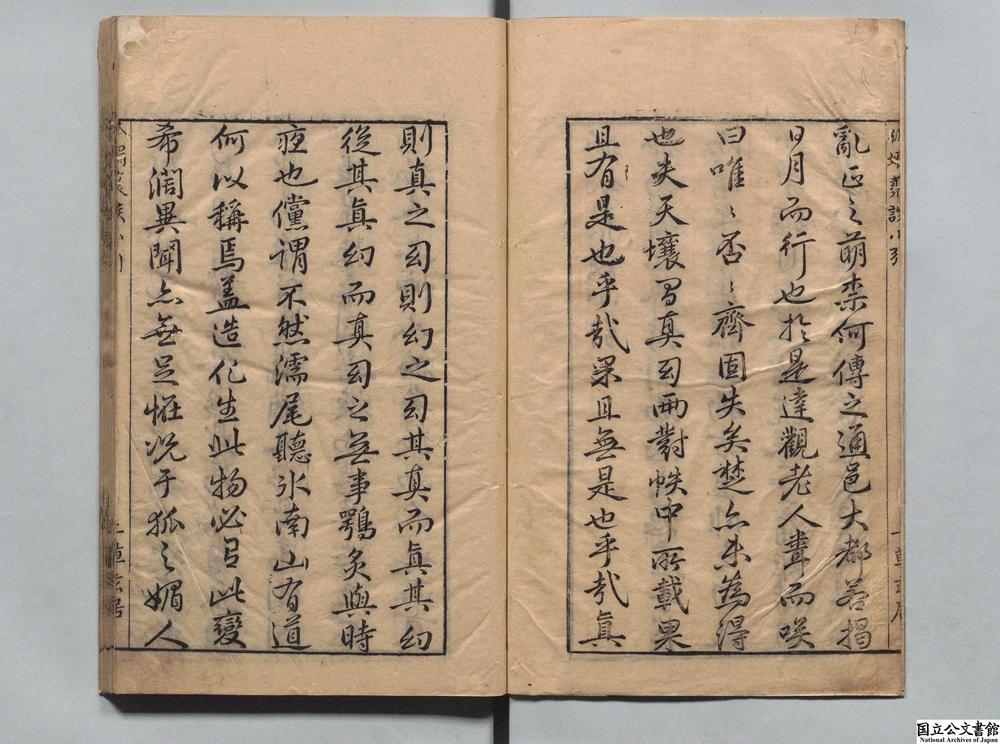 亂正之萌柰何傳之通邑大都若揭
日月而行也於是達觀老人聋而唉
曰唯〻否〻齊固失矣楚亦未為得
也夫天壤間真幻兩對帙中所載果
且有是也乎哉果且無是也乎哉真
則真之幻則幻之幻其真而真其幻
從其真幻而真幻之無事鴞炙與時
夜也儻謂不然濡尾聽氷南山有道
何以稱焉蓋造化生此物必有此變
希濶異聞亦無足恠况于狐之媚人
国立公文書館
National Archives of Japan